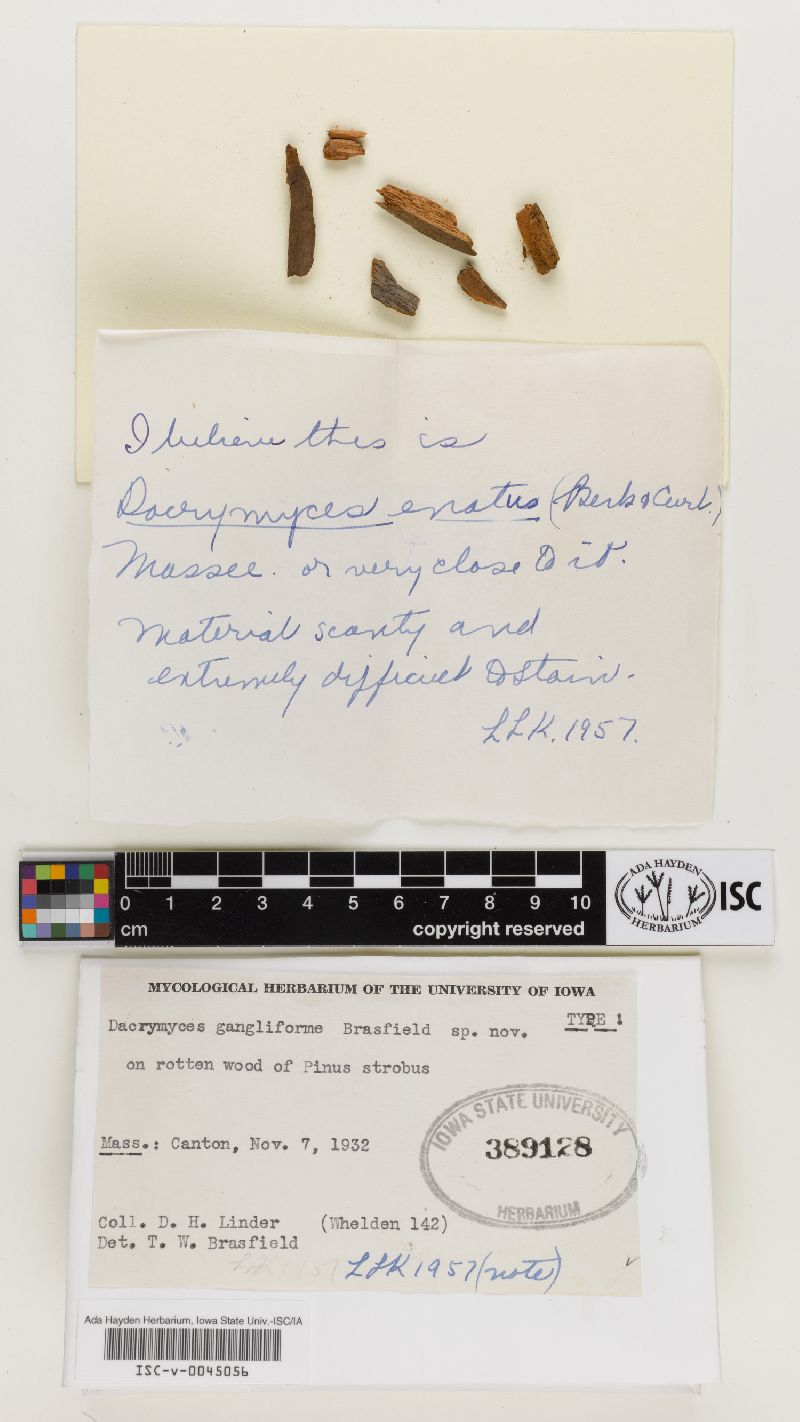 I believe this is
Dacrymyces enatus (Berk & Curt.)
Massee. or very close to it.
Material scanty and
extremely difficult to stain.
LLK. 1957.
0 1 2 3 4 5 6 7 8 9 10
cm
copyright reserved
ADA HAYDEN
HERBARIUM
ISC
MYCOLOGICAL HERBARIUM OF THE UNIVERSITY OF IOWA
Dacrymyces gangliforme Brasfield sp. nov. TYPE !
on rotten wood of Pinus strobus
IOWA STATE UNIVERSITY
389128
HERBARIUM
Mass.: Canton, Nov. 7, 1932
Coll. D. H. Linder (Whelden 142)
Det. T. W. Brasfield
LLK 1957 (note)
Ada Hayden Herbarium, Iowa State Univ.-ISC/IA
ISC-v-0045056